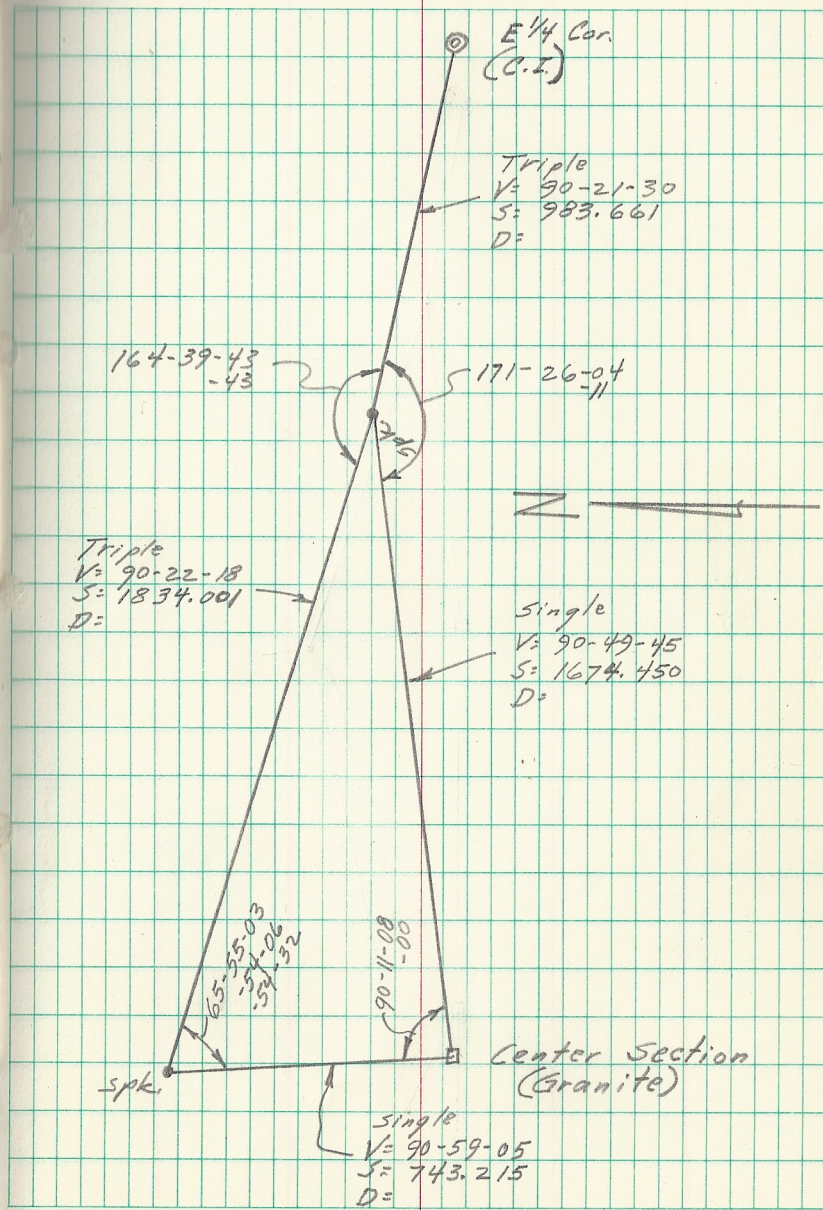 E 1/4 Cor.
(C.I.)
Triple
V= 90-21-30
S= 983.661
D=
164-39-43
-43
171-26-04
-11
spk
N
Triple
V= 90-22-18
S= 1834.001
D=
Single
V= 90-49-45
S= 1674.450
D=
65-55-03
-54-06
-54-32
90-11-08
-00
spk.
Center Section
(Granite)
single
V= 90-59-05
S= 743.215
D=